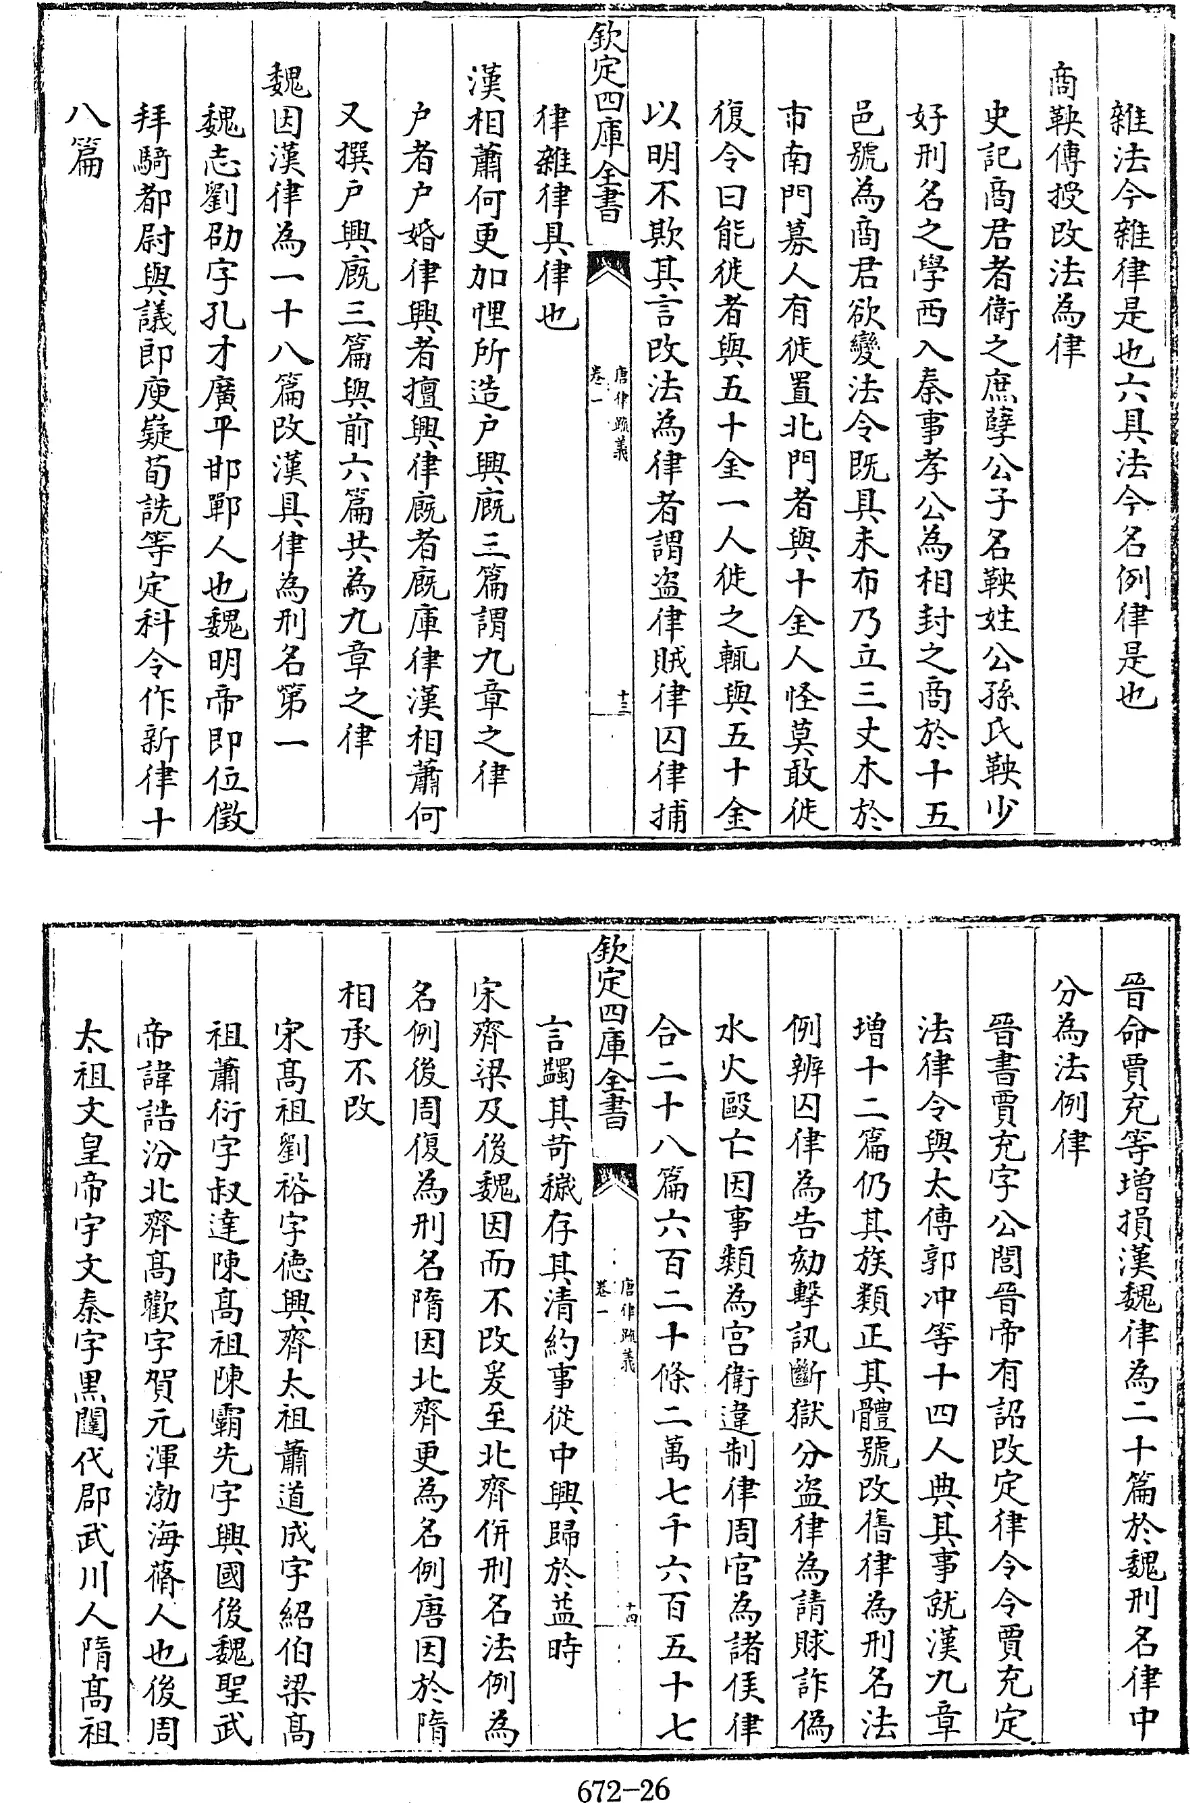 雜法今雜律是也六具法今名例律是也
商鞅傳授改法為律
史記商君者衛之庶孽公子名鞅姓公孫氏鞅少
好刑名之學西入秦事孝公為相封之商於十五
邑號為商君欲變法令既具未布乃立三丈木於
市南門募人有徙置北門者與十金人怪莫敢徙
復令曰能徙者與五十金一人徙之輒與五十金
以明不欺其言改法為律者謂盜律賊律囚律捕
欽定四庫全書
唐律疏義
卷一
十三
律雜律具律也
漢相蕭何更加悝所造户興廐三篇謂九章之律
户者户婚律興者擅興律廐者廐庫律漢相蕭何
又撰户興廐三篇與前六篇共為九章之律
魏因漢律為一十八篇改漢具律為刑名第一
魏志劉劭字孔才廣平邯鄲人也魏明帝即位徵
拜騎都尉與議郎庾嶷荀詵等定科令作新律十
八篇
晉命賈充等增損漢魏律為二十篇於魏刑名律中
分為法例律
晉書賈充字公閭晉帝有詔改定律令令賈充定
法律令與太傅郭冲等十四人典其事就漢九章
增十二篇仍其族類正其體號改舊律為刑名法
例辨囚律為告劾擊訊斷獄分盜律為請賕詐偽
水火毆亡因事類為宫衛違制律周官為諸侯律
合二十八篇六百二十條二萬七千六百五十七
欽定四庫全書
唐律疏義
卷一
十四
言蠲其苛穢存其清約事從中興歸於益時
宋齊梁及後魏因而不改爰至北齊併刑名法例為
名例後周復為刑名隋因北齊更為名例唐因於隋
相承不改
宋髙祖劉裕字德興齊太祖蕭道成字紹伯梁髙
祖蕭衍字叔達陳髙祖陳霸先字興國後魏聖武
帝諱詰汾北齊髙歡字賀元渾渤海蓨人也後周
太祖文皇帝宇文泰字黒闥代郡武川人隋髙祖
672-26